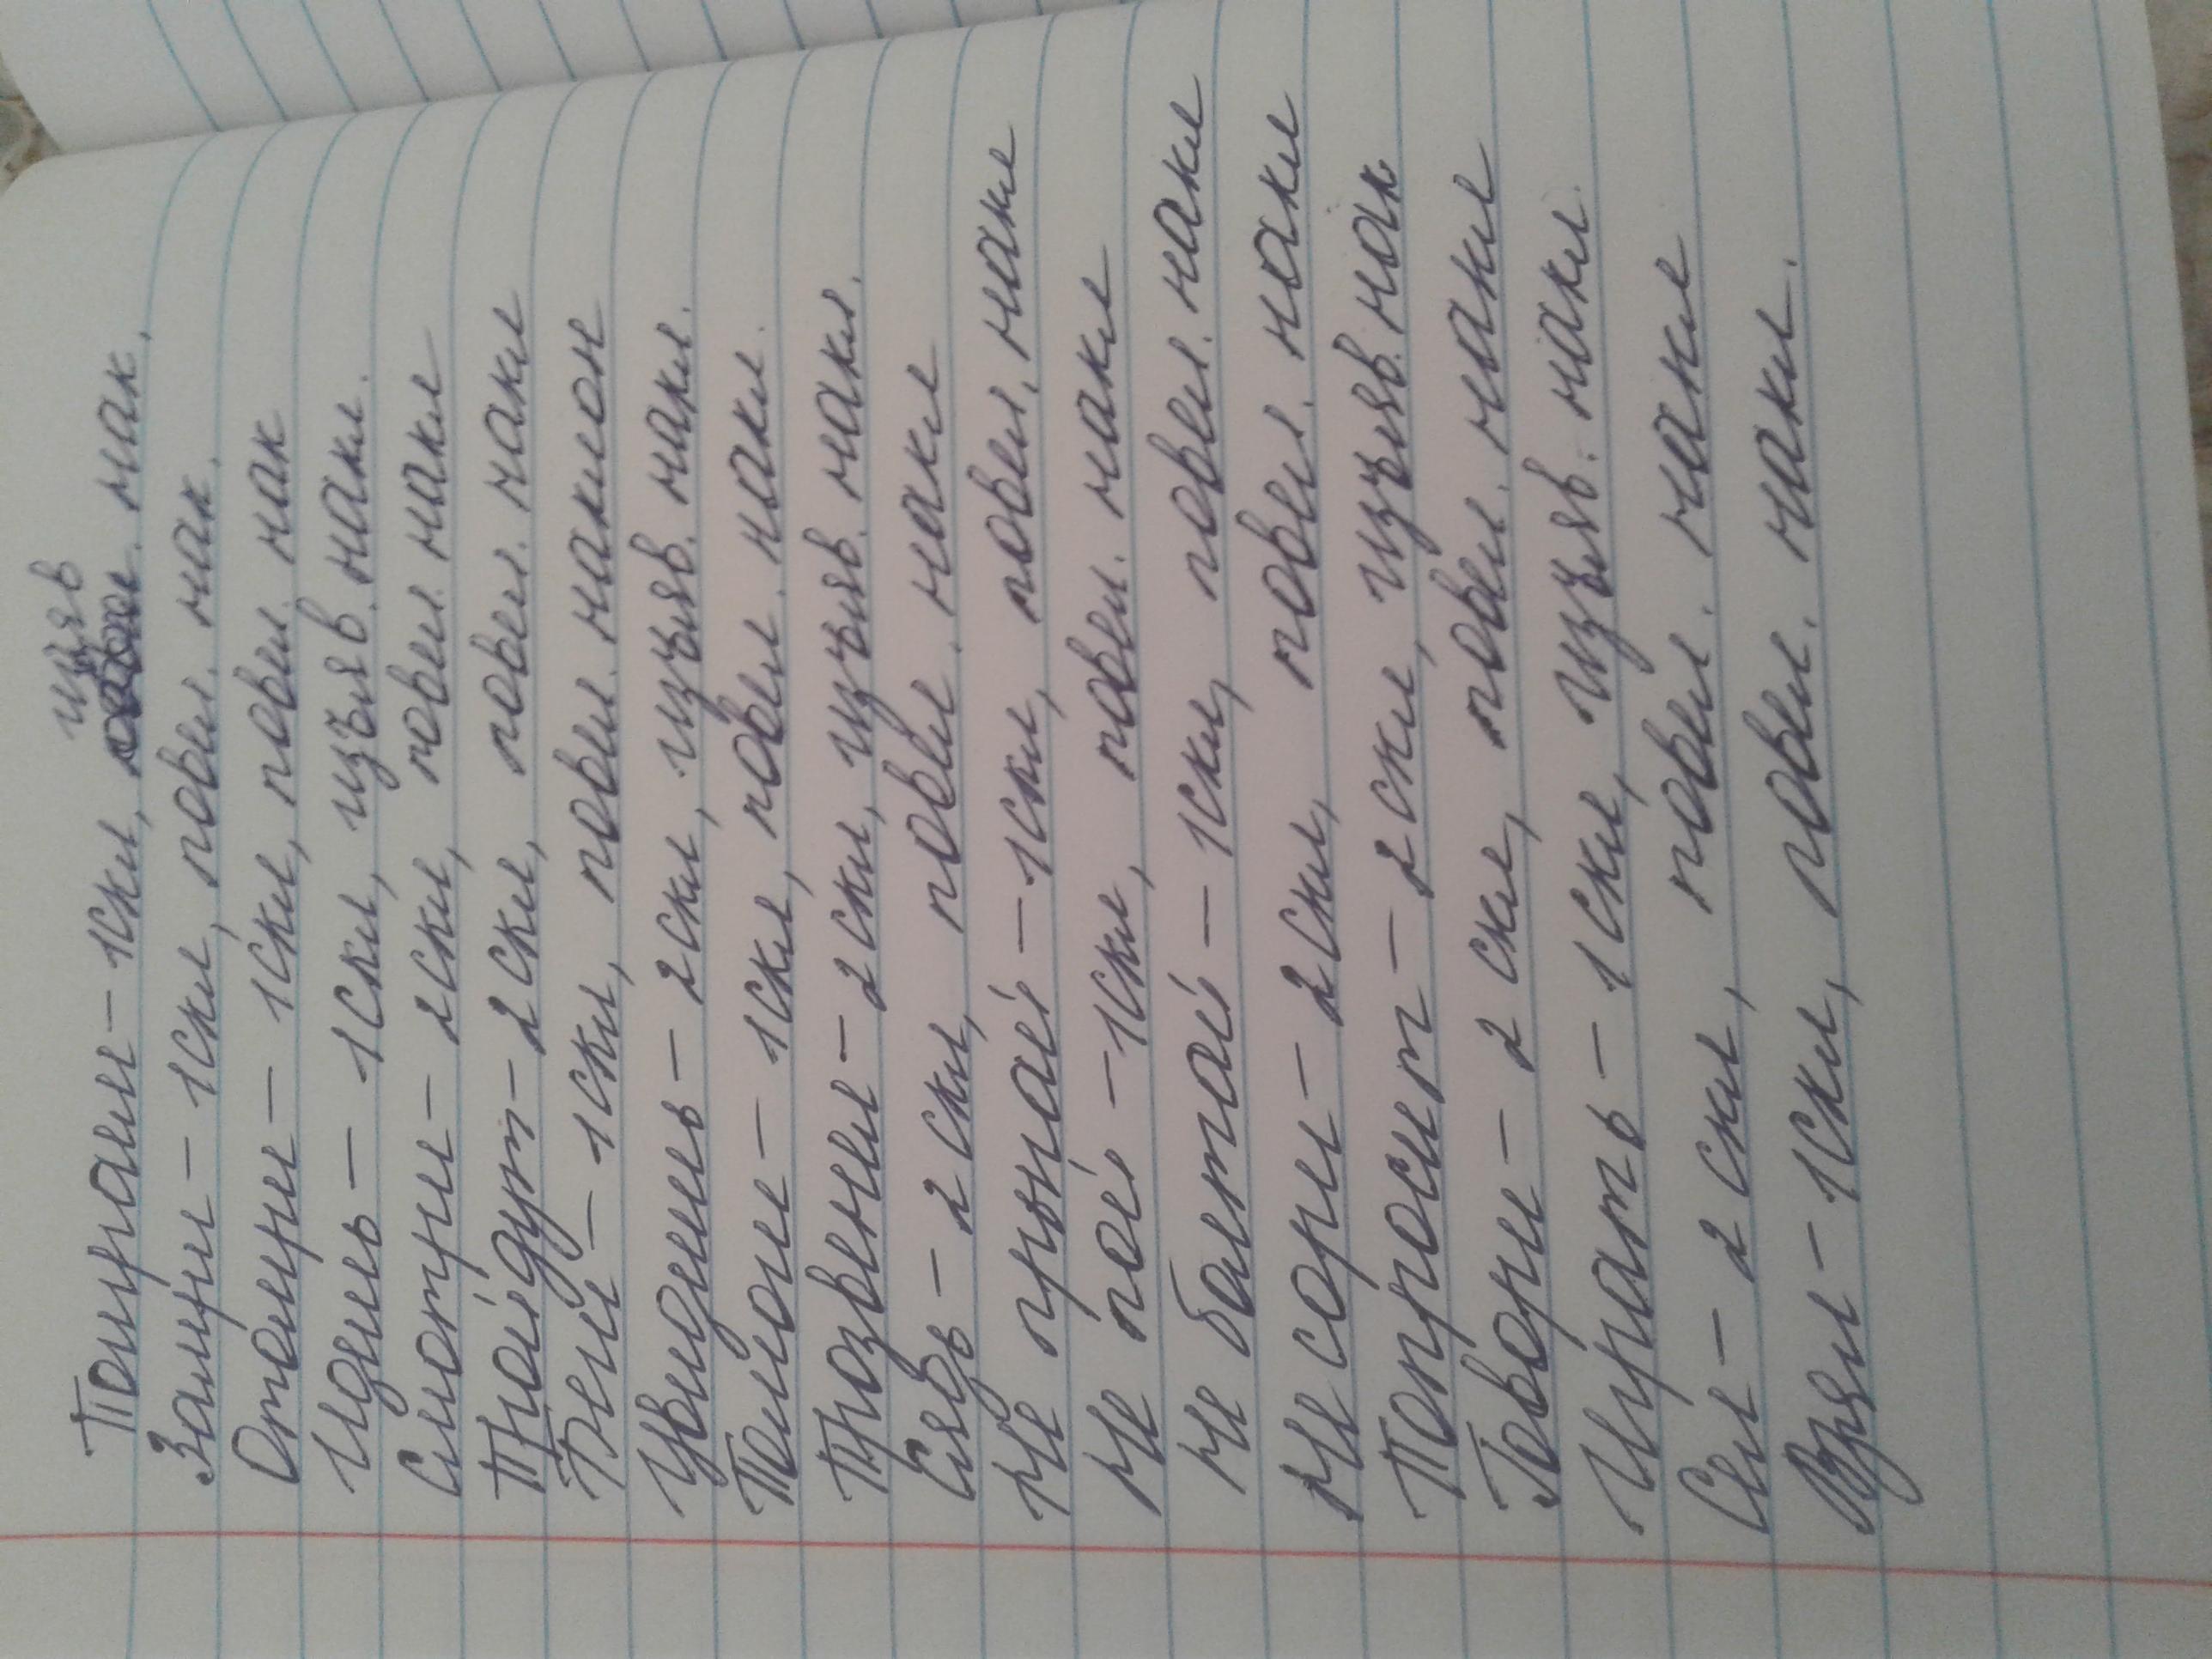 изяв
Поиграли - 1 скл, накл.
Замри - 1 скл, повел. нак.
Отомри - 1 скл, повел. нак
Идешь - 1 скл, изъяв. накл.
Смотри - 2 скл, повел. накл
Пройдут - 2 скл, повел. накл
Беги - 1 скл, повел. наклон
Увидишь - 2 скл, изъяв. накл.
Помоги - 1 скл, повел. накл.
Позвени - 2 скл, изъяв. накл.
Сядь - 2 скл, повел. накл
Не прыгай - 1 скл, повел. накл
Не пой - 1 скл, повел. накл
Не болтай - 1 скл, повел. накл
Не сори - 2 скл, повел. накл
Попросит - 2 скл, изъяв. нак
Говори - 2 скл, повел. накл
Играть - 1 скл, изъяв. накл.
2 скл, повел. накл
1 скл, повел. накл.